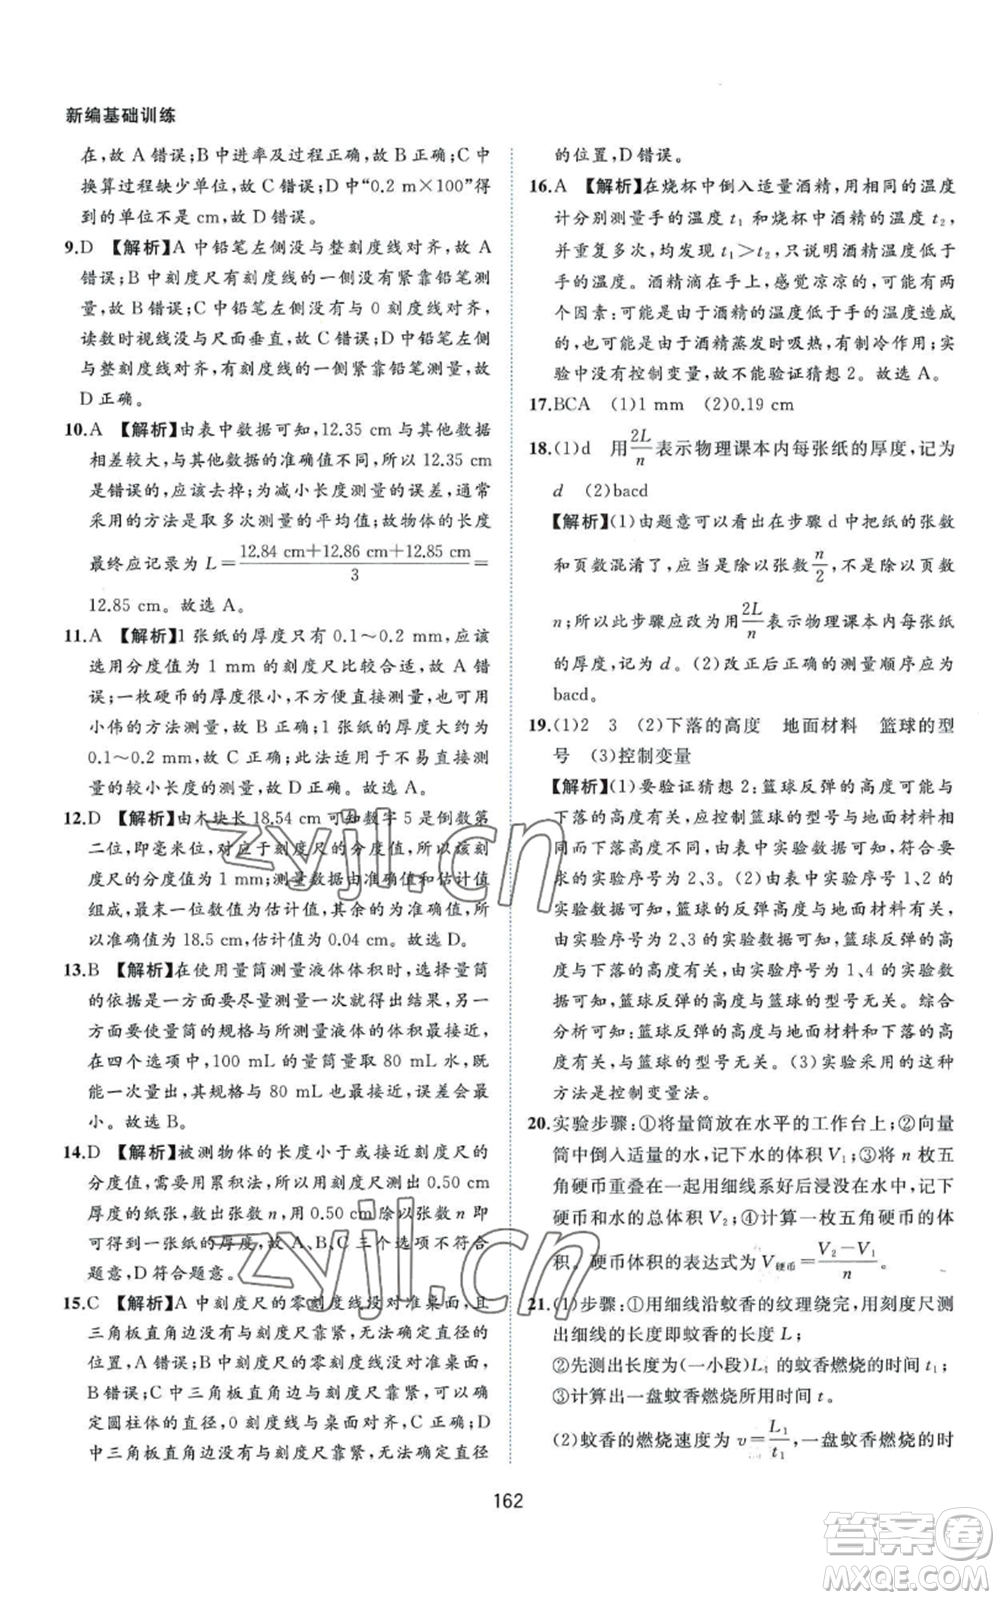 新编基础训练
在,故 A 错误;B 中进率及过程正确,故 B 正确;C 中
换算过程缺少单位,故 C 错误;D 中“0.2 m×100”得
到的单位不是 cm,故 D 错误。
9.D 【解析】A 中铅笔左侧没与整刻度线对齐,故 A
错误;B 中刻度尺有刻度线的一侧没有紧靠铅笔测
量,故 B 错误;C 中铅笔左侧没有与 0 刻度线对齐,
读数时视线没与尺面垂直,故 C 错误;D 中铅笔左侧
与整刻度线对齐,有刻度线的一侧紧靠铅笔测量,故
D 正确。
10.A 【解析】由表中数据可知,12.35 cm 与其他数据
相差较大,与其他数据的准确值不同,所以 12.35 cm
是错误的,应该去掉;为减小长度测量的误差,通常
采用的方法是取多次测量的平均值;故物体的长度
最终应记录为 L=(12.84 cm+12.86 cm+12.85 cm)/3=
12.85 cm。故选 A。
11.A 【解析】1 张纸的厚度只有 0.1～0.2 mm,应该
选用分度值为 1 mm 的刻度尺比较合适,故 A 错
误;一枚硬币的厚度很小,不方便直接测量,可以用
小伟的方法测量,故 B 正确;1 张纸的厚度大约为
0.1～0.2 mm,故 C 正确;此法适用于不易直接测
量的较小长度的测量,故 D 正确。故选 A。
12.D 【解析】由木块长 18.54 cm 可知数字 5 是倒数第
二位,即毫米位,对应于刻度尺的分度值,所以该刻
度尺的分度值是 1 mm;测量数据由准确值和估计值
组成,末尾一位数值为估计值,其余的为准确值,所
以准确值为 18.5 cm,估计值为 0.04 cm。故选 D。
13.B 【解析】在使用量筒测量液体体积时,选择量筒
的规格一方面要尽量测量一次就得出结果,另一
方面要使量筒的规格与所测量液体的体积最接近,
在四个选项中,100 mL 的量筒量取 80 mL 水,既能
一次量出,其规格与 80 mL 也最接近,误差会最
小。故选 B。
14.D 【解析】被测物体的长度小于或接近刻度尺的
分度值,需要用累积法,所以只要测出 0.50 cm
厚度的纸张,数出张数 n,用 0.50 cm 除以 n 即可
得到一张纸的厚度,故 A、B、C 三个选项不符合
题意,D 符合题意。
15.C 【解析】A 中刻度尺的零刻度线没对准桌面,且
三角板直角边没有与刻度尺靠紧,无法确定直径的
位置,A 错误;B 中刻度尺的零刻度线没对准桌面,故
B 错误;C 中三角板直角边与刻度尺靠紧,可以确
定圆柱体的直径,0 刻度线与桌面对齐,C 正确;D
中三角板直角边没有与刻度尺靠紧,无法确定直径
的位置,D 错误。
16.A 【解析】在烧杯中倒入适量酒精,用相同的温度
计分别测量手的温度 t₁ 和烧杯中酒精的温度 t₂,
并重复多次,均发现 t₁＞t₂,只说明酒精的温度低
于手的温度。酒精滴在手上,感觉凉凉的,可能有两
个因素:可能是由于酒精的温度低于手的温度造成
的,也可能是由于酒精蒸发时吸热,有制冷作用;实
验中没有控制变量,故不能验证猜想 2。故选 A。
17.BCA (1)1 mm (2)0.19 cm
18.(1)d 用2L/n表示物理课本内每张纸的厚度,记为
d (2)bacd
【解析】(1)由题意可以看出在步骤 d 中把纸的张数
和页数混淆了,应当是除以张数n/2,不是除以页数
n;所以此步骤应改为用2L/n表示物理课本内每张纸
的厚度,记为 d。(2)改正后正确的测量顺序应为
bacd。
19.(1)2 3 (2)下落的高度 地面材料 篮球的型
号 (3)控制变量
【解析】(1)要验证猜想 2:篮球反弹的高度可能与
下落的高度有关,应控制篮球的型号与地面材料相
同而下落高度不同,由表中实验数据可知,符合要
求的实验序号为 2、3。(2)由表中实验序号 1、2 的
实验数据可知,篮球的反弹高度与地面材料有关,
由实验序号 2、3 的实验数据可知,篮球反弹的高度
与下落的高度有关,由实验序号为 1、4 的实验数据
可知,篮球反弹的高度与篮球的型号无关。综合
分析可知:篮球反弹的高度与地面材料和下落的高
度有关,与篮球的型号无关。(3)实验采用的这种
方法是控制变量法。
20.实验步骤:①将量筒放在水平的工作台上;②向量
筒中倒入适量的水,记下水的体积 V₁;③将 n 枚五
角硬币重叠在一起用细线系好后浸没在水中,记下
硬币和水的总体积 V₂;④计算一枚五角硬币的体
积。硬币体积的表达式为 V硬币=(V₂−V₁)/n。
21.(1)步骤:①用细线沿蚊香的纹理绕完,用刻度尺测
出细线的长度即蚊香的长度 L;
②先测出长度为(一小段)L₁ 的蚊香燃烧的时间 t₁;
③计算出一盘蚊香燃烧所用时间 t。
(2)蚊香的燃烧速度为 v=L₁/t₁,一盘蚊香燃烧的时
162
zyjl.cn
zyjl.cn
答案卷
MXQE.COM